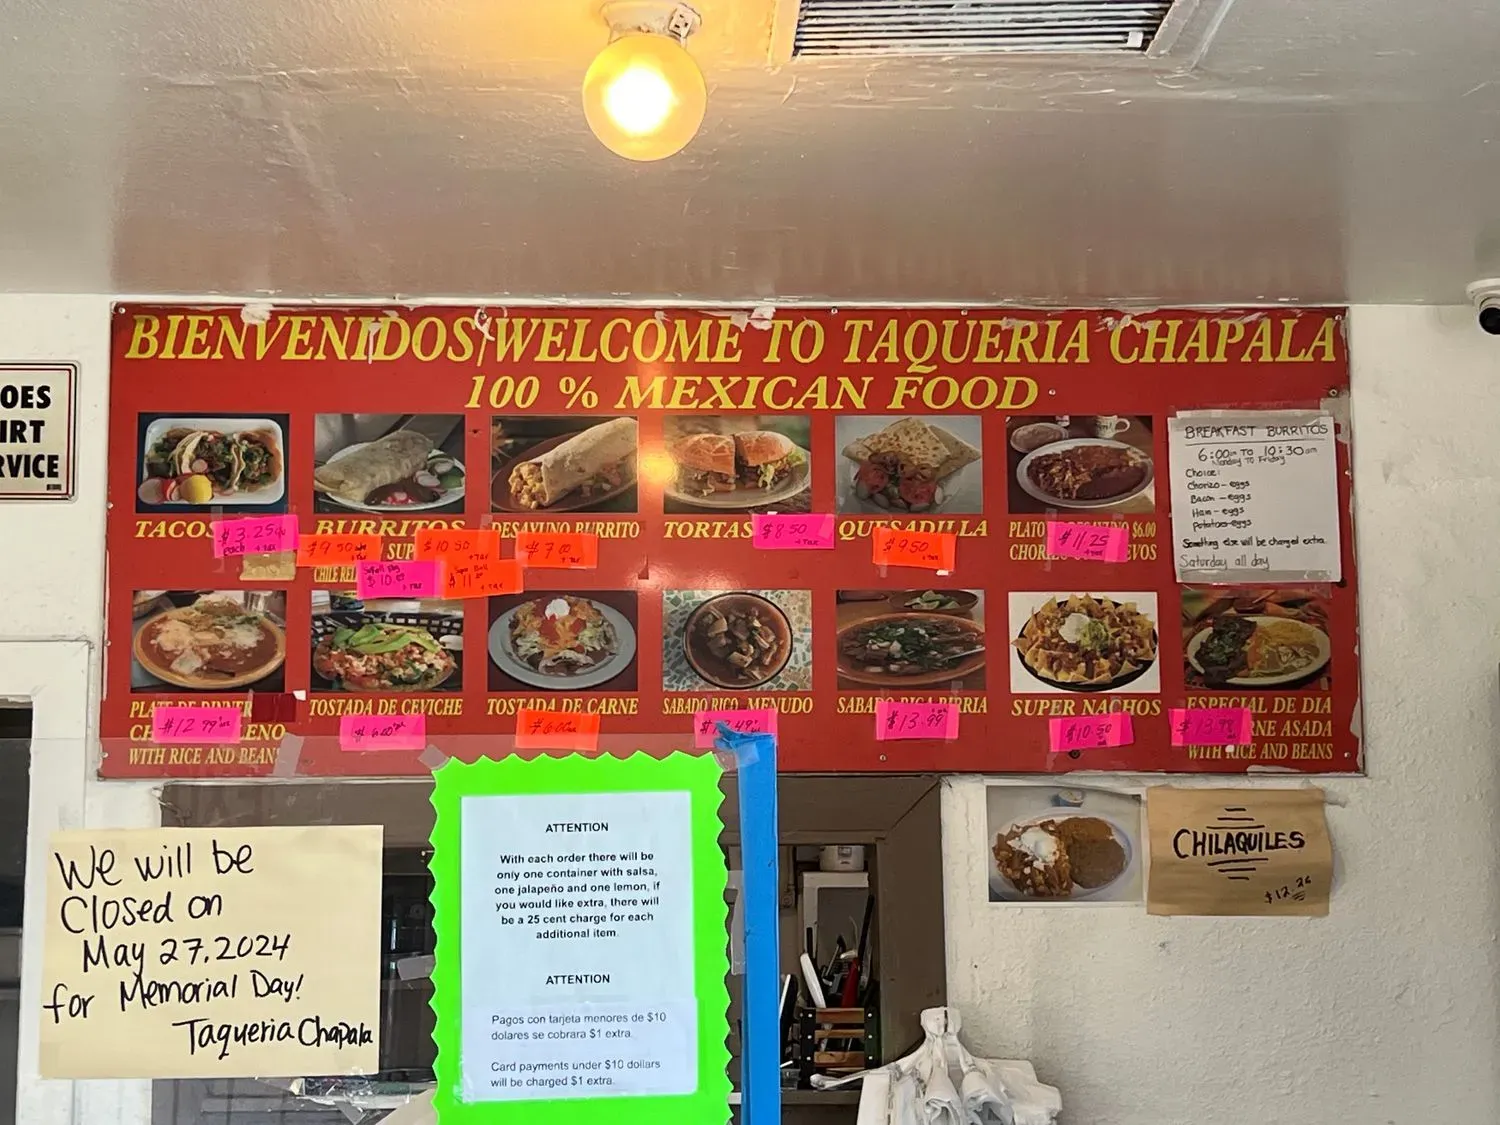 BIENVENIDOS/WELCOME TO TAQUERIA CHAPALA
100 % MEXICAN FOOD
OES
IRT
RVICE
TACOS
$3.25
each + tax
BURRITOS
$9.50
+ tax
SUP
$10.50
+ tax
CHILE REL
$10.
+ tax
$11.
+ tax
DESAYUNO BURRITO
$7.00
+ tax
TORTAS
$8.50
+ tax
QUESADILLA
$9.50
+ tax
PLATO
$6.00
CHOR
EVOS
$11.25
+ tax
BREAKFAST BURRITOS
6:00am TO 10:30am
Monday TO Friday
Choice:
Chorizo-eggs
Bacon-eggs
Ham-eggs
Potatoes-eggs
Something else will be charged extra.
Saturday all day
PLATE DE DINNER
CH
LENO
WITH RICE AND BEANS
$12.99
TOSTADA DE CEVICHE
$6.00
TOSTADA DE CARNE
$6.00
SABADO RICO MENUDO
SABADO RICA BIRRIA
$13.99
SUPER NACHOS
$10.50
ESPECIAL DE DIA
RNE ASADA
WITH RICE AND BEANS
We will be
Closed on
May 27, 2024
for Memorial Day!
Taqueria Chapala
ATTENTION
With each order there will be
only one container with salsa,
one jalapeño and one lemon, if
you would like extra, there will
be a 25 cent charge for each
additional item.
ATTENTION
Pagos con tarjeta menores de $10
dolares se cobrara $1 extra.
Card payments under $10 dollars
will be charged $1 extra.
CHILAQUILES
$12.26